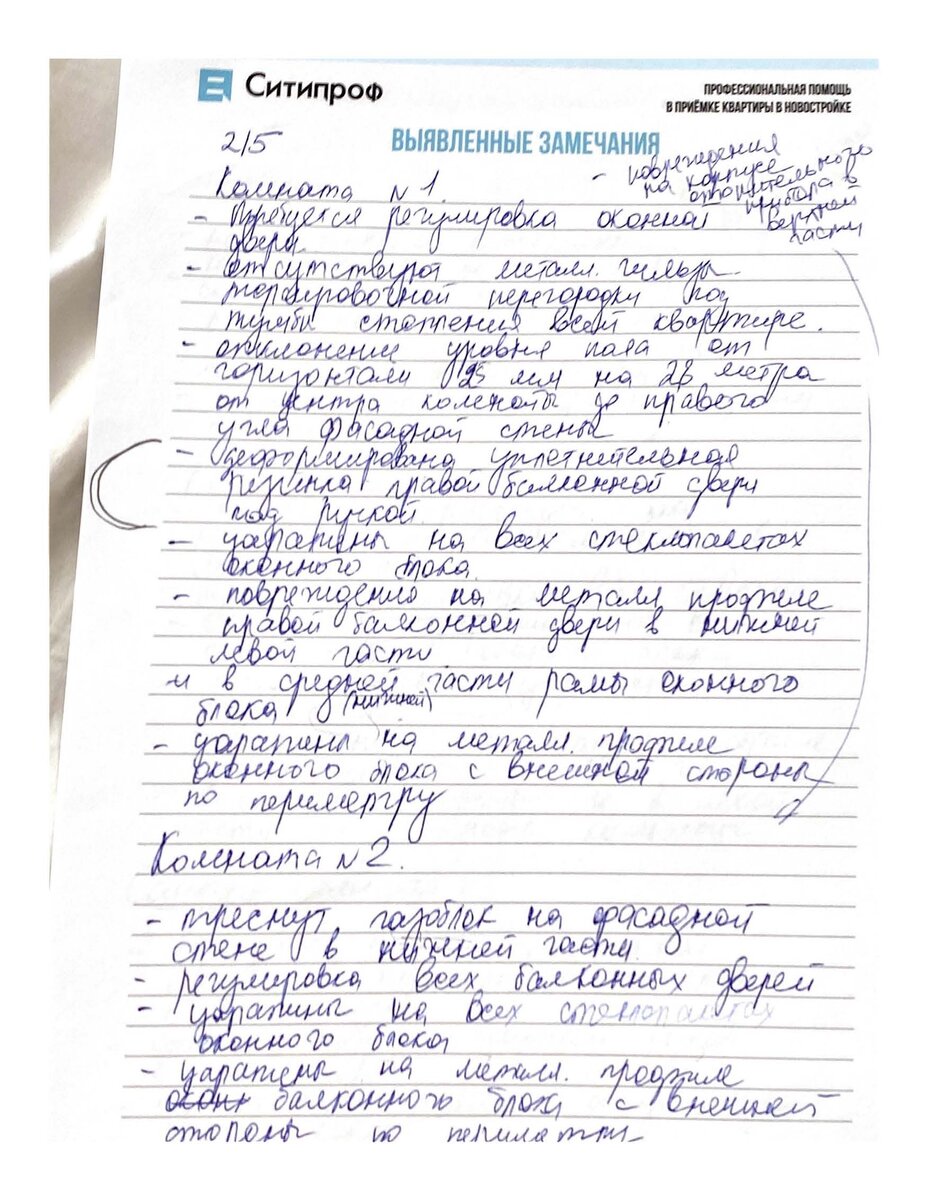 Ситипроф
ПРОФЕССИОНАЛЬНАЯ ПОМОЩЬ
В ПРИЁМКЕ КВАРТИРЫ В НОВОСТРОЙКЕ
2/5
ВЫЯВЛЕННЫЕ ЗАМЕЧАНИЯ
- повреждения
на корпусе
отопительного
прибора в
верхней
части
Комната N 1
- Требуется регулировка оконной
двери.
- отсутствуют металл. гильзы
перегородки под
трубы отопления всей квартире.
- отклонение уровня пола от
горизонтали 25 мм на 2 метра
от центра комнаты до правого
угла фасадной стены
- деформирована уплотнительная
резинка правой балконной двери
под ручкой.
- царапины на всех стеклопакетах
оконного блока.
- повреждено на металл профиле
правой балконной двери в нижней
левой части
и в средней части рамы оконного
блока (нижней)
- царапины на металл. профиле
оконного блока с внешней стороны
по периметру
Комната N 2.
- треснут газоблок на фасадной
стене в нижней части.
- регулировка всех балконных дверей
- царапины на всех стеклопакетах
оконного блока
- царапины на металл. профиле
балконного блока с внешней
стороны по периметру